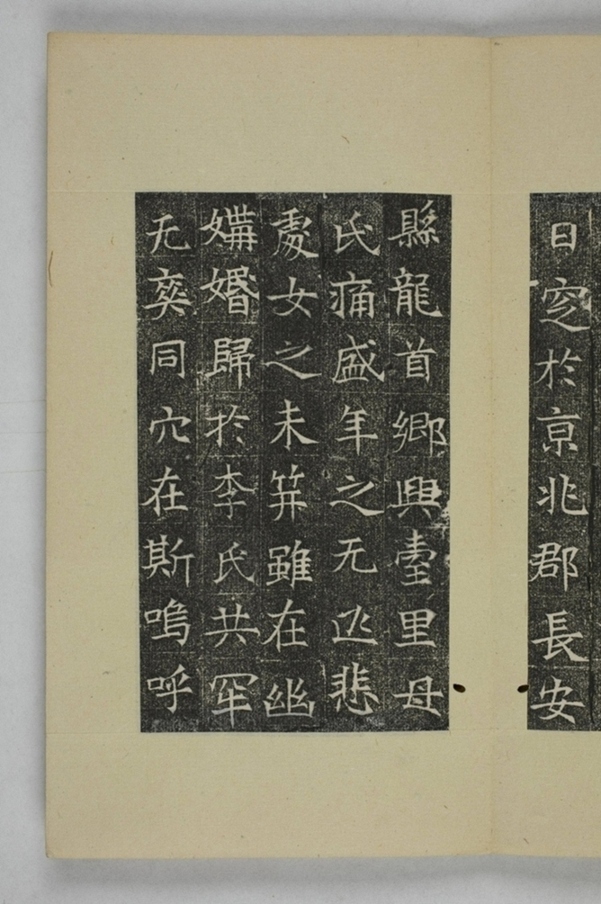 日窆於京兆郡長安
縣龍首鄉興臺里母
氏痛盛年之无匹悲
處女之未笄雖在幽
媾婚歸於李氏共牢
无爽同穴在斯嗚呼